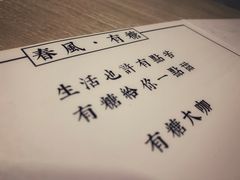 春風·有糖
生活也許有點苦
有糖給你一點甜
有糖大咖